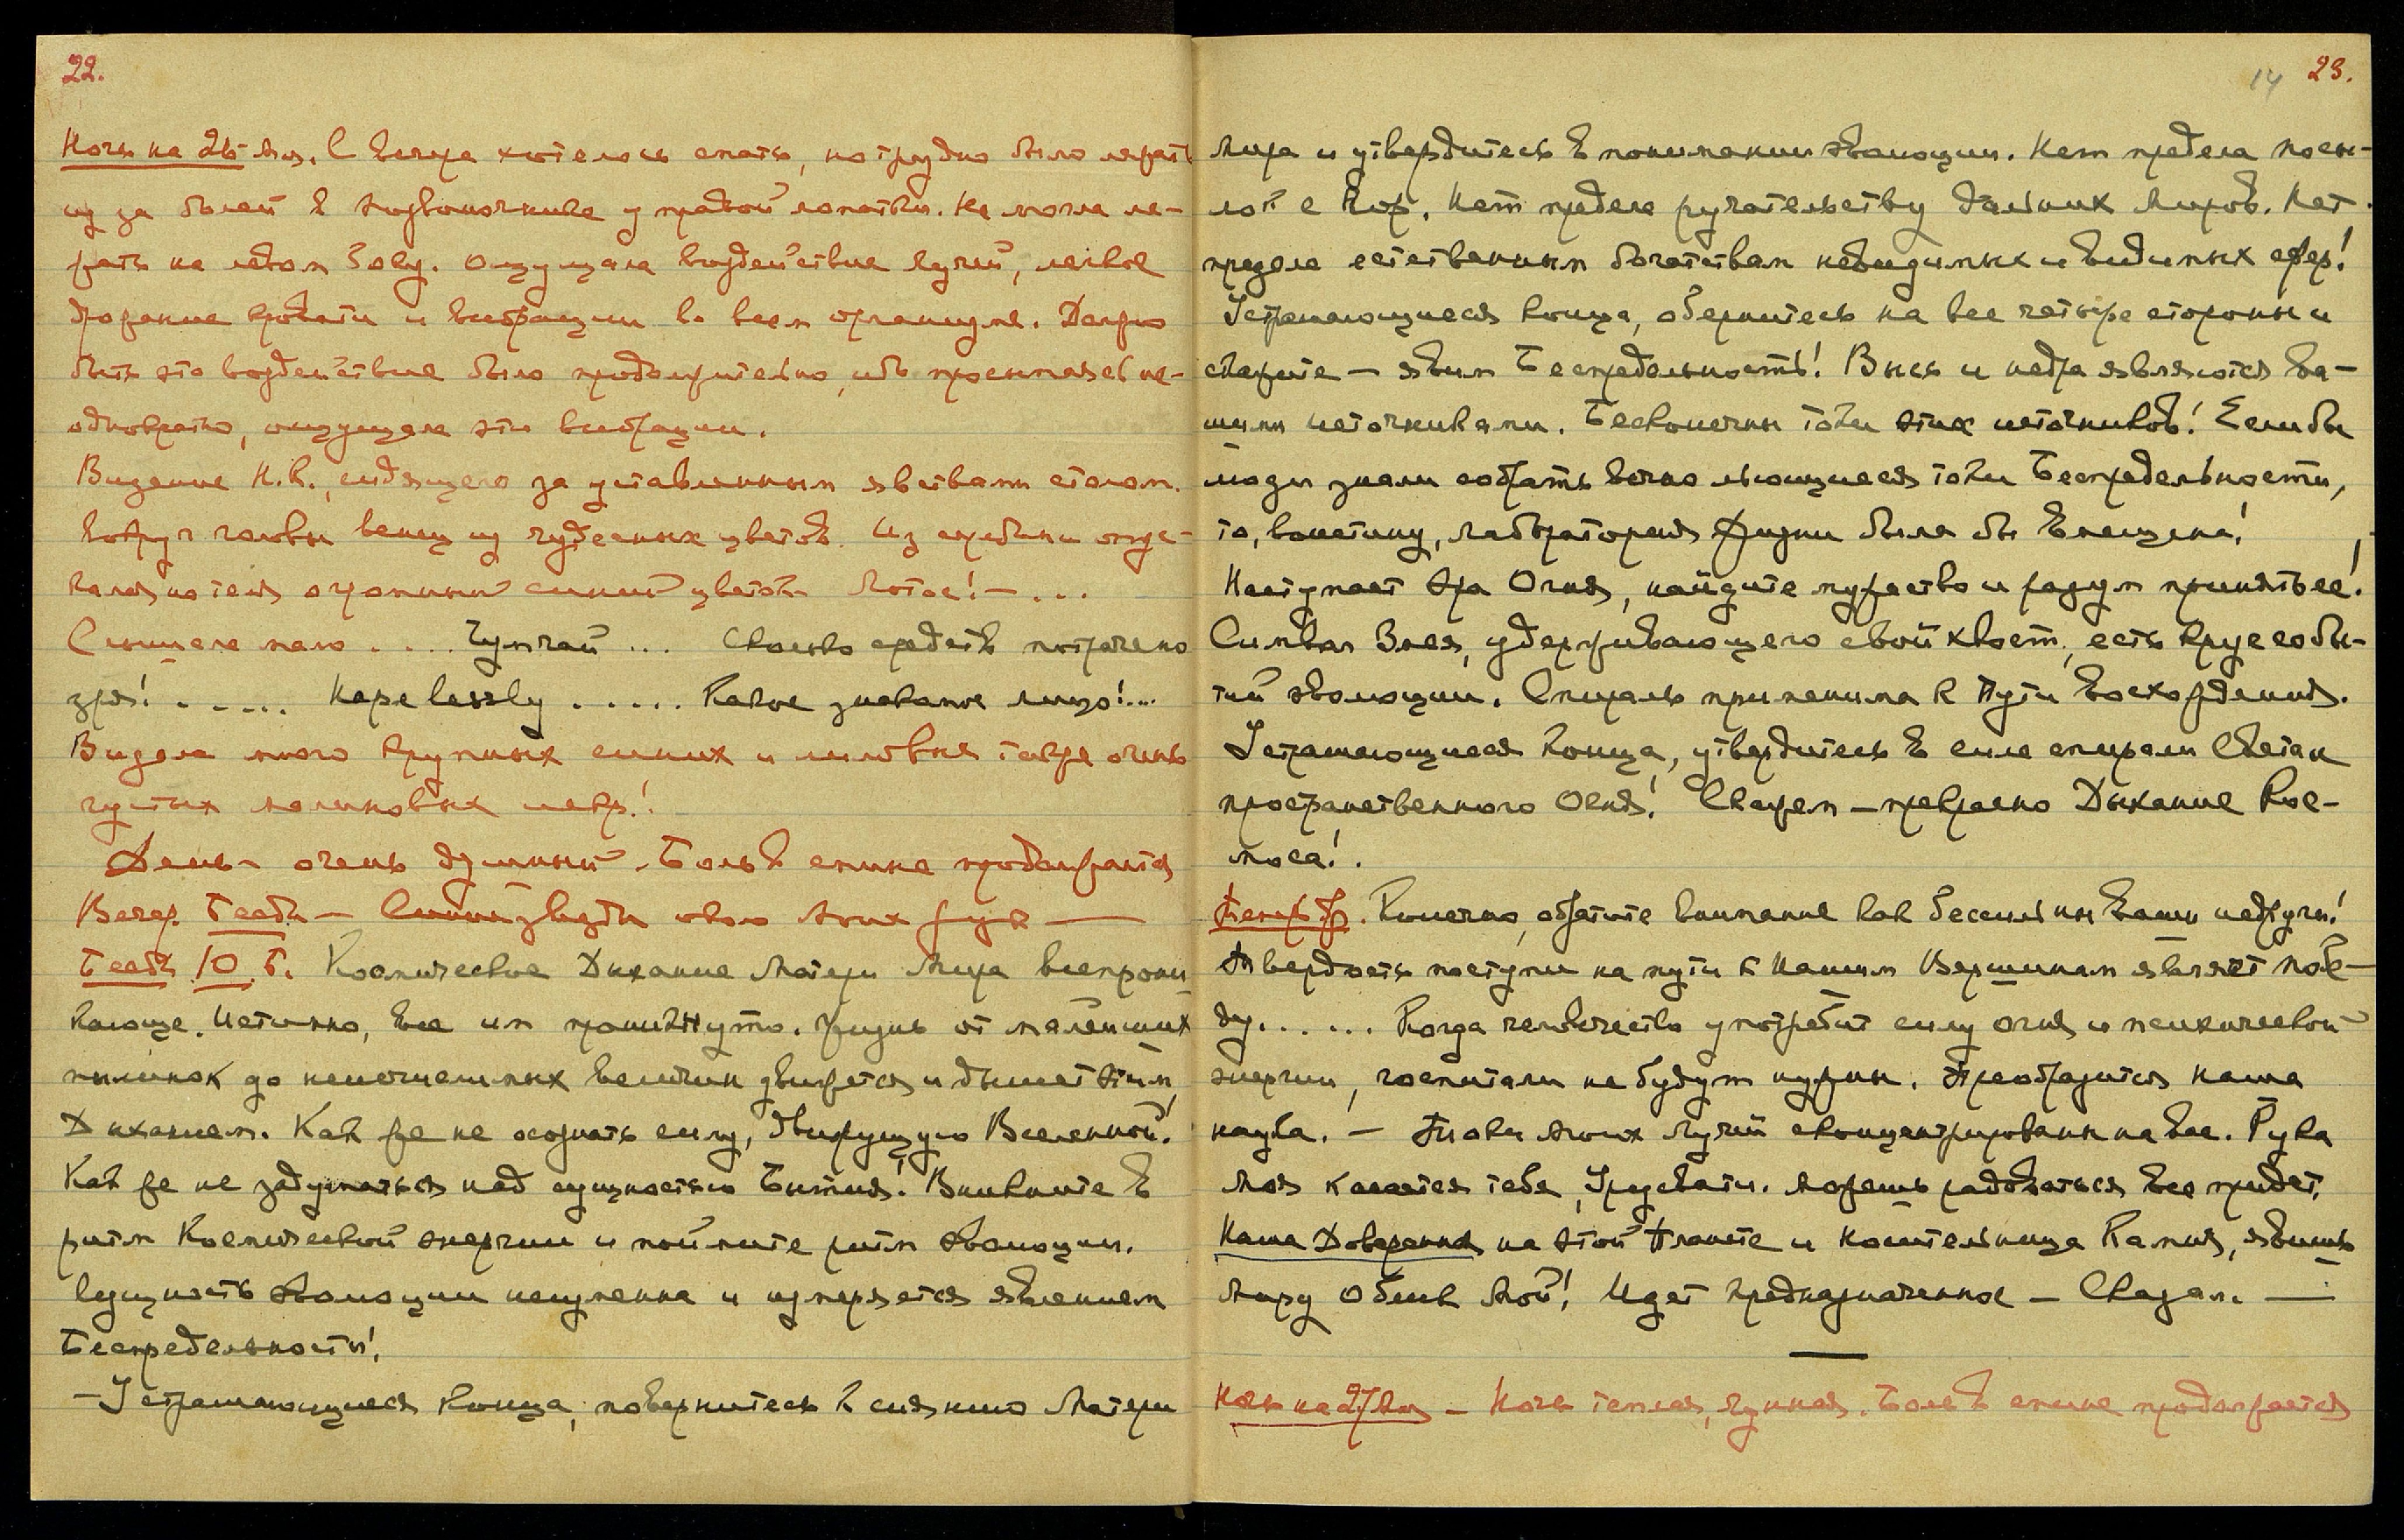 22.
Ночь на 26 Ал. С вечера хотелось спать, но трудно было лежать
из за болей в позвоночнике у правой лопатки. Не могла ле-
жать на левом боку. Ощущала воздействие лучей, легкое
дрожание кровати и вибрации во всем организме. Должно
быть это воздействие было продолжительно, ибо просыпаясь не-
однократно, ощущала эти вибрации.
Видение Н.К., сидящего за уставленным яствами столом.
Вокруг головы венец из чудесных цветов. Из середины
огромный синий цветок Лотос! — ...
Слышала мало .... Чунгай ... Сколько средств потрачено
зря! ..... Hapelessly ..... Какое знакомое лицо!...
Видела много крупных синих и лиловых также очень
густых малиновых искр!
День — очень душный. Боль в спине продолжается
Вечер. Бесед. — Синие звезды около Моих рук —
Бесед. Ю. Б. Космическое Дыхание Матери Мира всепрони-
кающе. Истинно, все им проникнуто. Жизнь от малейших
пылинок до неисчислимых величин движется и дышет этим
Дыханием. Как же не осознать силу, движущую Вселенной!
Как же не задуматься над сущностью Бытия! Вникните в
ритм Космической энергии и поймите ритм эволюции.
Сущность эволюции неизменна и измеряется явлением
Беспредельности!
— Устрашающиеся конца, повернитесь к сиянию Матери
14 23.
Мира и утвердитесь в понимании эволюции. Нет предела посы-
лой с Гор. Нет предела ручательству дальних Миров. Нет
предела естественным богатствам невидимых и видимых сфер!
Устрашающиеся конца, обернитесь на все четыре стороны и
скажите — явим Беспредельность! Высь и недра являются ва-
шими источниками. Бесконечны токи этих источников! Если бы
люди знали собрать вечно льющиеся токи Беспредельности,
то, воистину, лаборатория Жизни была бы Вмещена!
Наступает Эра Огня, найдите мужество и разум принять ее!
Символ Змея, удерживающего свой хвост, есть круг собы-
тий эволюции. Спираль применима к Пути восхождения.
Устрашающиеся конца, утвердитесь в силе спирали Светан
пространственного Огня! Скажем — прекрасно Дыхание Кос-
моса!.
Теперь др. Конечно, обратите внимание как бессильны ваши недруги!
Твердость поступи на пути к Нашим Вершинам являет побе-
ду...... Когда человечество употребит силу огня и психической
энергии, госпитали не будут нужны. Преобразится наша
наука. — Токи Моих Лучей сконцентрированы на Вас. Рука
Моя касается тебя, Урусвати. Можешь радоваться все придет.
Наша Доверенная на этой Планете и Носительница Камня, явишь
Миру Облик Мой! Идет предназначенное — Сказал. —
Ночь на 27 Ал — Ночь теплая, лунная. Боль в спине продолжается